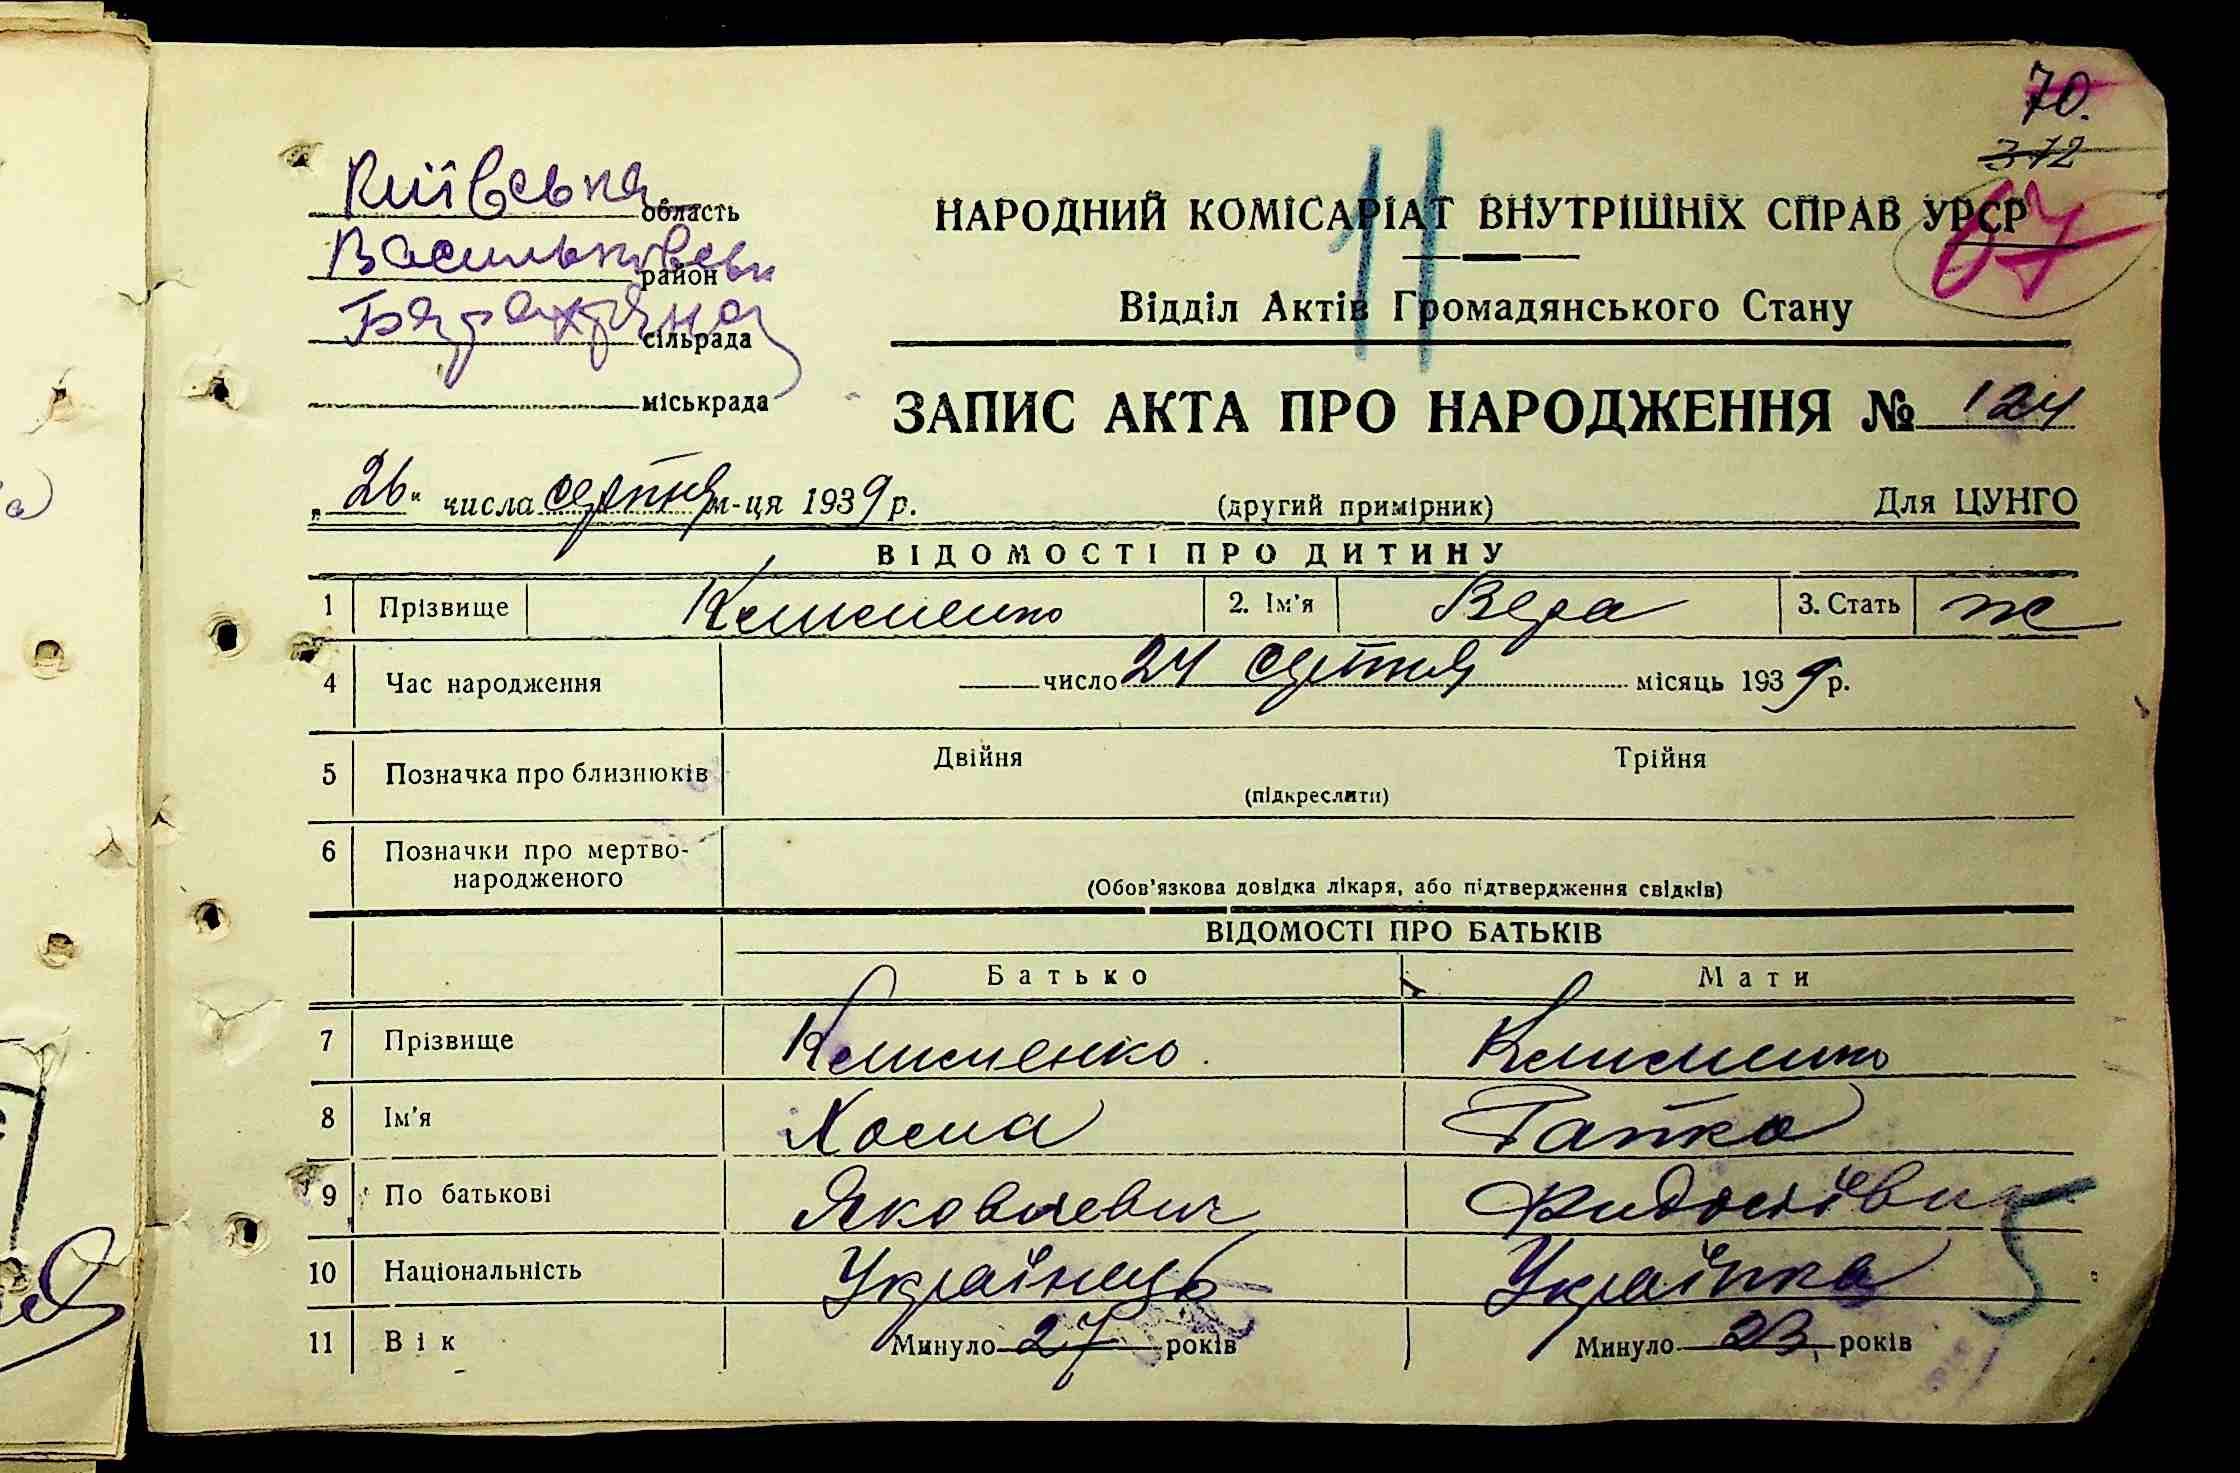 70.
312
67
Київська область
Васильковськ район
сільрада
міськрада
НАРОДНИЙ КОМІСАРІАТ ВНУТРІШНІХ СПРАВ УРСР
11
Відділ Актів Громадянського Стану
ЗАПИС АКТА ПРО НАРОДЖЕННЯ № 124
„26" числа серпня м-ця 1939 р. (другий примірник) Для ЦУНГО
ВІДОМОСТІ ПРО ДИТИНУ
1 Прізвище Клименко 2. Ім'я Вера 3. Стать ж
4 Час народження число 24 серпня місяць 1939 р.
5 Позначка про близнюків Двійня Трійня
(підкреслити)
6 Позначки про мертво-
народженого
(Обов'язкова довідка лікаря, або підтвердження свідків)
ВІДОМОСТІ ПРО БАТЬКІВ
Батько Мати
7 Прізвище Клименко Клименко
8 Ім'я Хома Гапка
9 По батькові Яковлевич
10 Національність Українець Українка
11 Вік Минуло 27 років Минуло 23 років